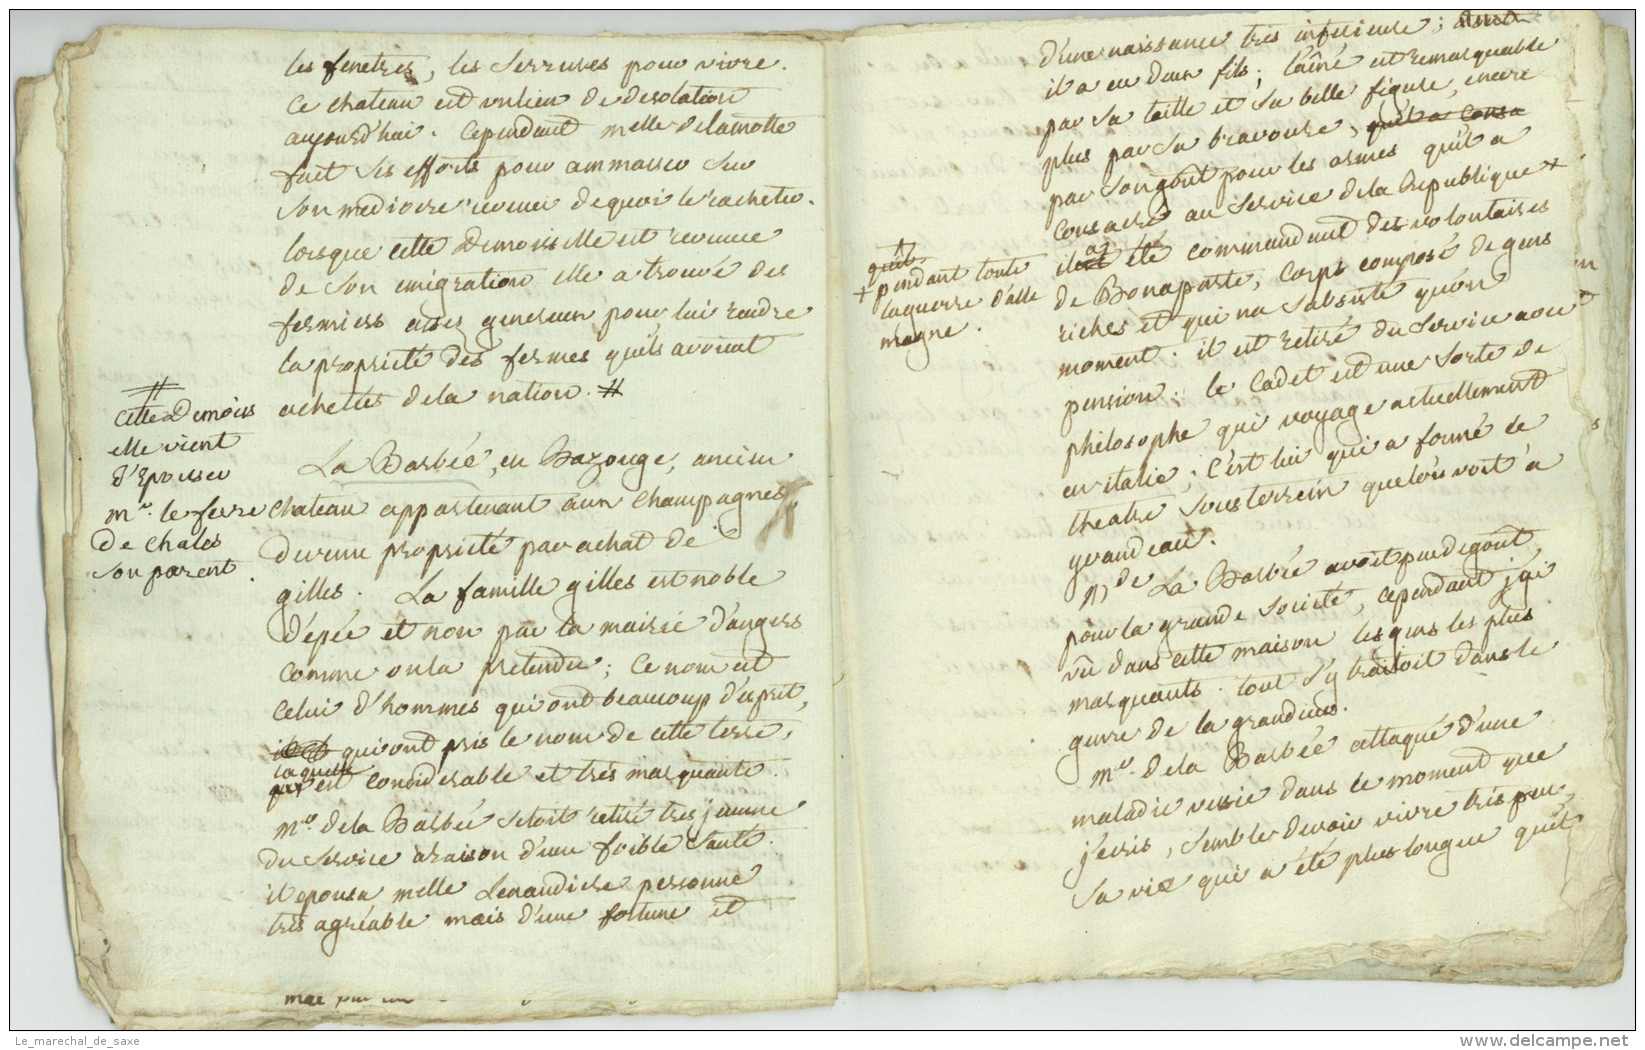 les fenetres, les serrures pour vivre.
Ce chateau est un lieu de desolation
aujourd'hui. Cependant melle delamotte
fait ses efforts pour ammasser sur
son mediocre revenu de quoi le racheter.
lorsque cette Demoiselle est revenue
de son emigration elle a trouvé des
fermiers assez genereux pour lui rendre
la proprieté des fermes qu'ils avoient
achetées de la nation. #
#
Cette Demois
elle vient
d'Epouser
mr. le ferre
De Chales
son parent.
La Barbée, en Bazouge, ancien
chateau appartenant a un Champagnes,
devenue proprieté par achat de
gilles. La famille gilles est noble
d'épée et non par la mairie d'angers
comme on la pretendu; ce nom est
celui d'hommes qui ont beaucoup d'esprit,
qui ont pris le nom de cette terre,
laquelle est considerable et très marquante.
Mr. de la Barbée setoit retiré tres jeune
du service a raison d'une foible santé.
il epousa melle Lenaudiere personne
tres agréable mais d'une fortune et
d'une naissance tres inferieure;
il a eu deux fils; l'ainé est remarquable
par sa taille et sa belle figure, encore
plus par sa bravoure, qu'il a consa
par son goût pour les armes qu'il a
consacré au service de la Republique +
qu'il
+ pendant toute
la guerre d'alle
magne.
il a été commandant des volontaires
de Bonaparte, corps composé de gens
riches et qui na subsisté qu'un
moment. il est retiré du service avec
pension. le cadet est une sorte de
philosophe qui voyage actuellement
en italie; c'est lui qui a formé le
theatre souterrein que lon voit a
grandeau.
Mde La Barbée avoit peu de gout
pour la grande société, cependant j'ai
vu dans cette maison les gens les plus
marquants. tout s'y traitoit dans le
genre de la grandeur.
Mr. de la Barbée attaqué d'une
maladie vessie dans le moment que
j'ecris, semble devoir vivre tres peu,
sa vie qui a été plus longue qu'il
Le_marechal_de_saxe
delcampe.net